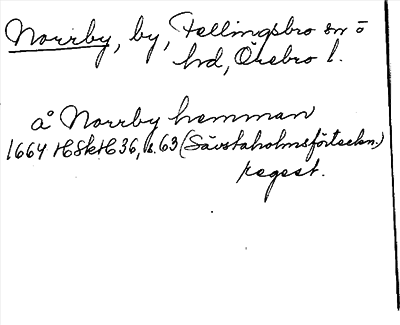 Norrby, by, Fellingsbro sn o
hd, Örebro l.
å Norrby hemman
1664 HSkH 36, s. 63 (Sävstaholmsförteckn.)
regest.